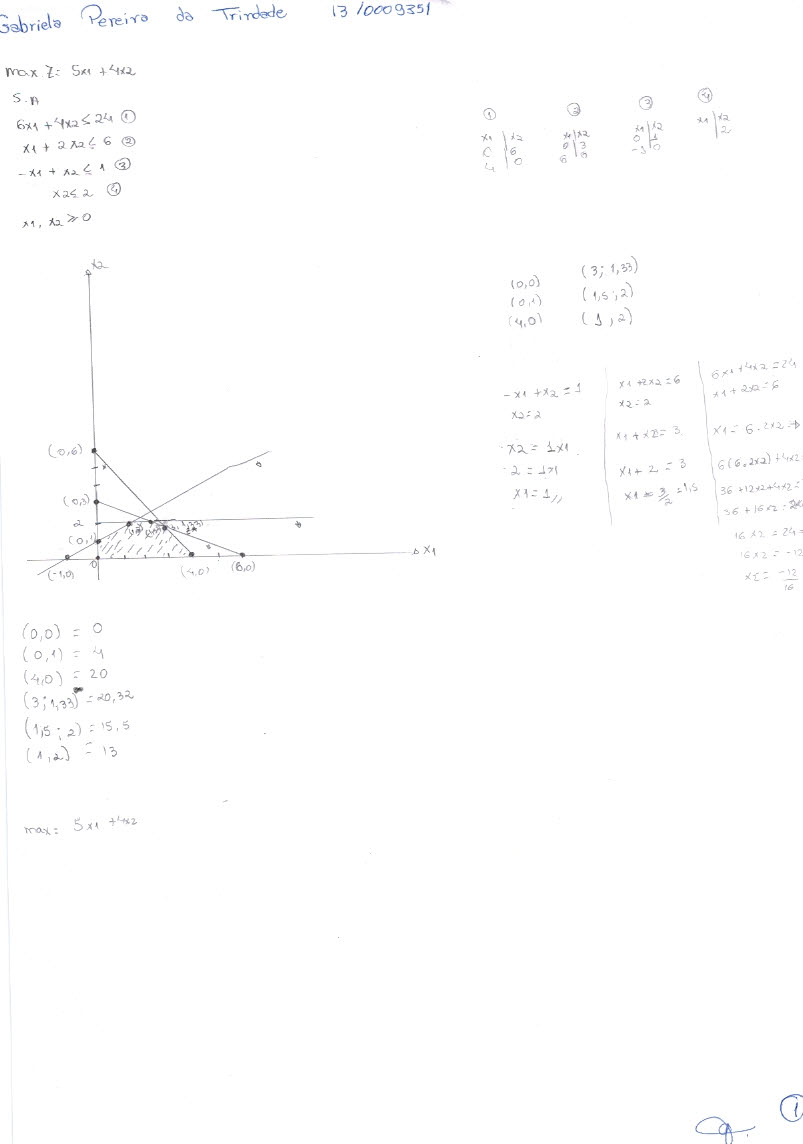 Gabriela Pereira da Trindade 13/0009351
max Z = 5x1 + 4x2
S.A
6x1 + 4x2 ≤ 24 ①
x1 + 2x2 ≤ 6 ②
-x1 + x2 ≤ 1 ③
x2 ≤ 2 ④
x1, x2 ≥ 0
① ② ③ ④
x1 | x2 x1 | x2 x1 | x2 x1 | x2
0 | 6 0 | 3 0 | 1 | 2
4 | 0 6 | 0 -1 | 0
(0,0) (3; 1,33)
(0,1) (1,5; 2)
(4,0) (1, 2)
-x1 + x2 = 1
x2 = 2
x2 = 1x1
2 = 1x1
x1 = 1,,
x1 + 2x2 = 6
x2 = 2
x1 + x2 = 3
x1 + 2 = 3
x1 = 3/2 = 1,5
6x1 + 4x2 = 24
x1 + 2x2 = 6
x1 = 6 - 2x2 ⇒
6(6-2x2) + 4x2
36 + 12x2 + 4x2 =
36 + 16x2 =
16x2 = 24 -
16x2 = -12
x2 = -12/16
x2
(0,6)
(0,3)
2
(0,1)
(-1,0) 0 (4,0) (6,0) x1
(0,0) = 0
(0,1) = 4
(4,0) = 20
(3; 1,33) = 20,32
(1,5; 2) = 15,5
(1,2) = 13
max = 5x1 + 4x2
①